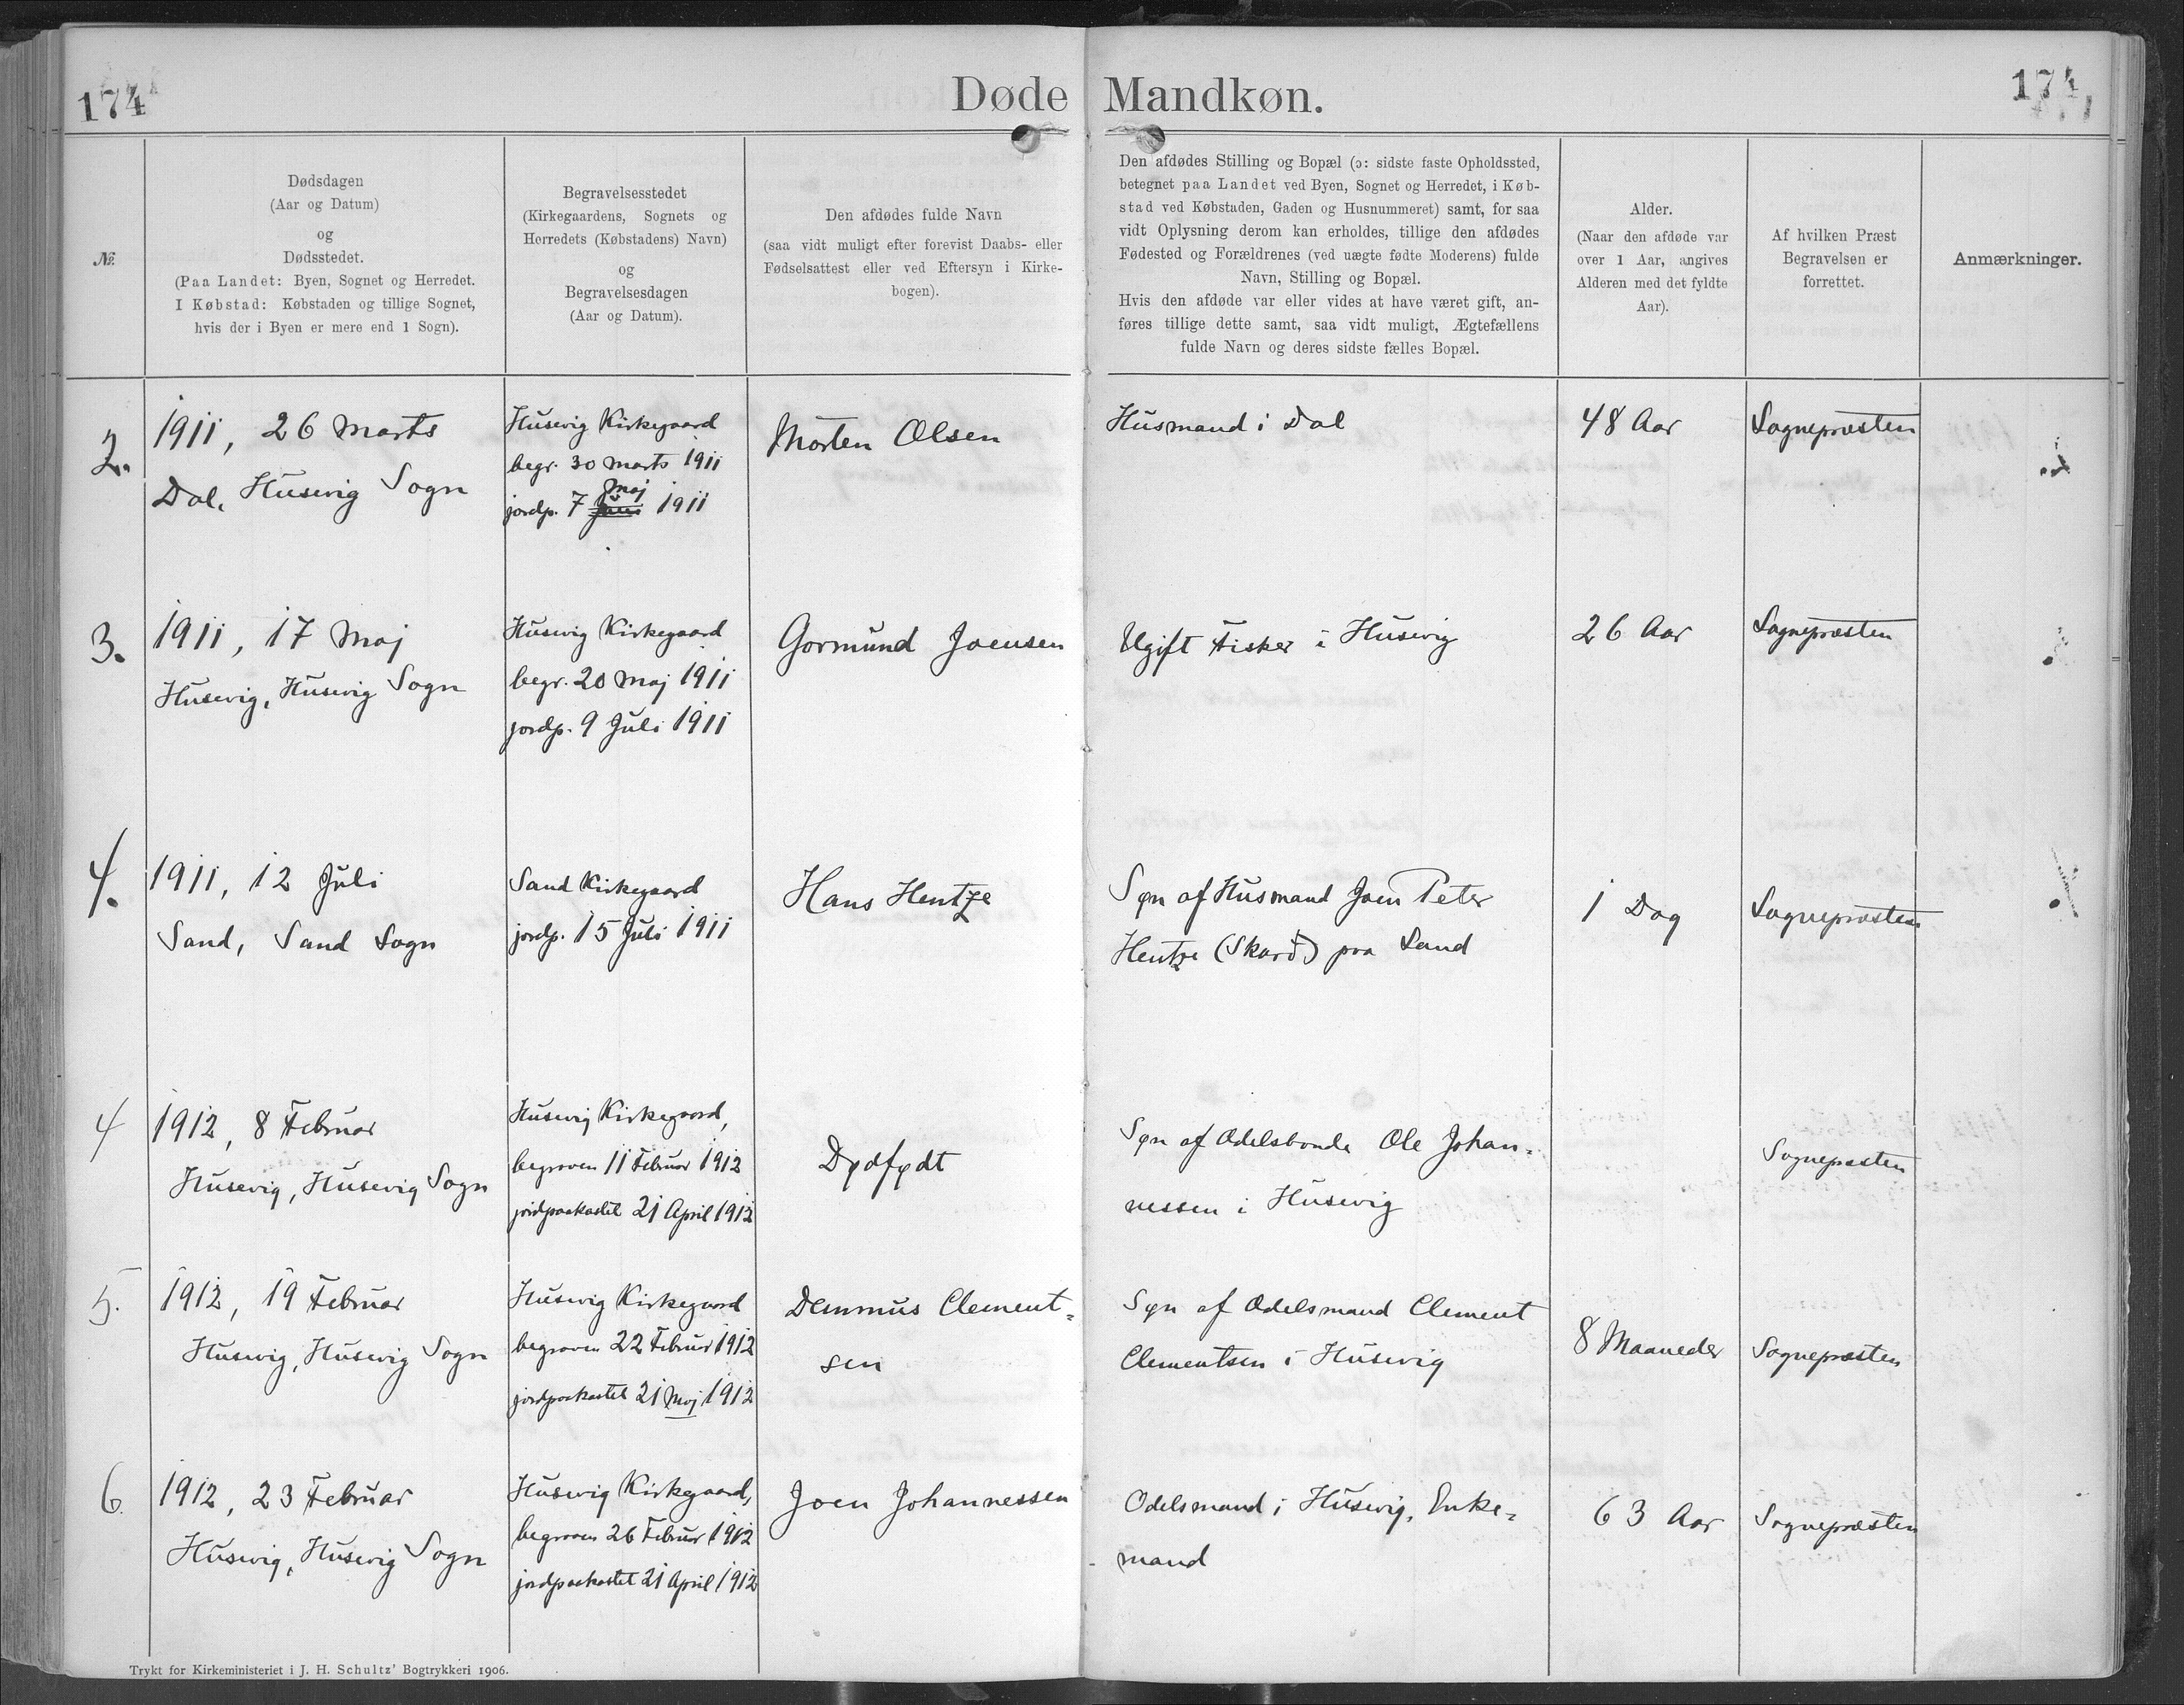 174
Døde Mandkøn.
174
№.
Dødsdagen
(Aar og Datum)
og
Dødsstedet.
(Paa Landet: Byen, Sognet og Herredet.
I Købstad: Købstaden og tillige Sognet,
hvis der i Byen er mere end 1 Sogn).
Begravelsesstedet
(Kirkegaardens, Sognets og
Herredets (Købstadens) Navn)
og
Begravelsesdagen
(Aar og Datum).
Den afdødes fulde Navn
(saa vidt muligt efter forevist Daabs- eller
Fødselsattest eller ved Eftersyn i Kirke-
bogen).
Den afdødes Stilling og Bopæl (ɔ: sidste faste Opholdssted,
betegnet paa Landet ved Byen, Sognet og Herredet, i Køb-
stad ved Købstaden, Gaden og Husnummeret) samt, for saa
vidt Oplysning derom kan erholdes, tillige den afdødes
Fødested og Forældrenes (ved uægte fødte Moderens) fulde
Navn, Stilling og Bopæl.
Hvis den afdøde var eller vides at have været gift, an-
føres tillige dette samt, saa vidt muligt, Ægtefællens
fulde Navn og deres sidste fælles Bopæl.
Alder.
(Naar den afdøde var
over 1 Aar, angives
Alderen med det fyldte
Aar).
Af hvilken Præst
Begravelsen er
forrettet.
Anmærkninger.
2.
1911, 26 Marts
Dal, Husevig Sogn
Husevig Kirkegaard
begr. 30 Marts 1911
jordp. 7 Maj 1911
Morten Olsen
Husmand i Dal
48 Aar
Sognepræsten
3.
1911, 17 Maj
Husevig, Husevig Sogn
Husevig Kirkegaard
begr. 20 Maj 1911
jordp. 9 Juli 1911
Gormund Joensen
Ugift Fisker i Husevig
26 Aar
Sognepræsten
4.
1911, 12 Juli
Sand, Sand Sogn
Sand Kirkegaard
jordp. 15 Juli 1911
Hans Hentze
Søn af Husmand Joen Peter
Hentze (Skard) paa Sand
1 Dag
Sognepræsten
4
1912, 8 Februar
Husevig, Husevig Sogn
Husevig Kirkegaard,
begraven 11 Februar 1912
jordpaakastet 21 April 1912
Dødfødt
Søn af Odelsbonde Ole Johan-
nessen i Husevig
Sognepræsten
5.
1912, 19 Februar
Husevig, Husevig Sogn
Husevig Kirkegaard
begraven 22 Februar 1912
jordpaakastet 21 Maj 1912
Demmus Clement-
sen
Søn af Odelsmand Clement
Clementsen i Husevig
8 Maaneder
Sognepræsten
6.
1912, 23 Februar
Husevig, Husevig Sogn
Husevig Kirkegaard,
begraven 26 Februar 1912
jordpaakastet 21 April 1912
Joen Johannessen
Odelsmand i Husevig, Enke-
mand
63 Aar
Sognepræsten
Trykt for Kirkeministeriet i J. H. Schultz' Bogtrykkeri 1906.